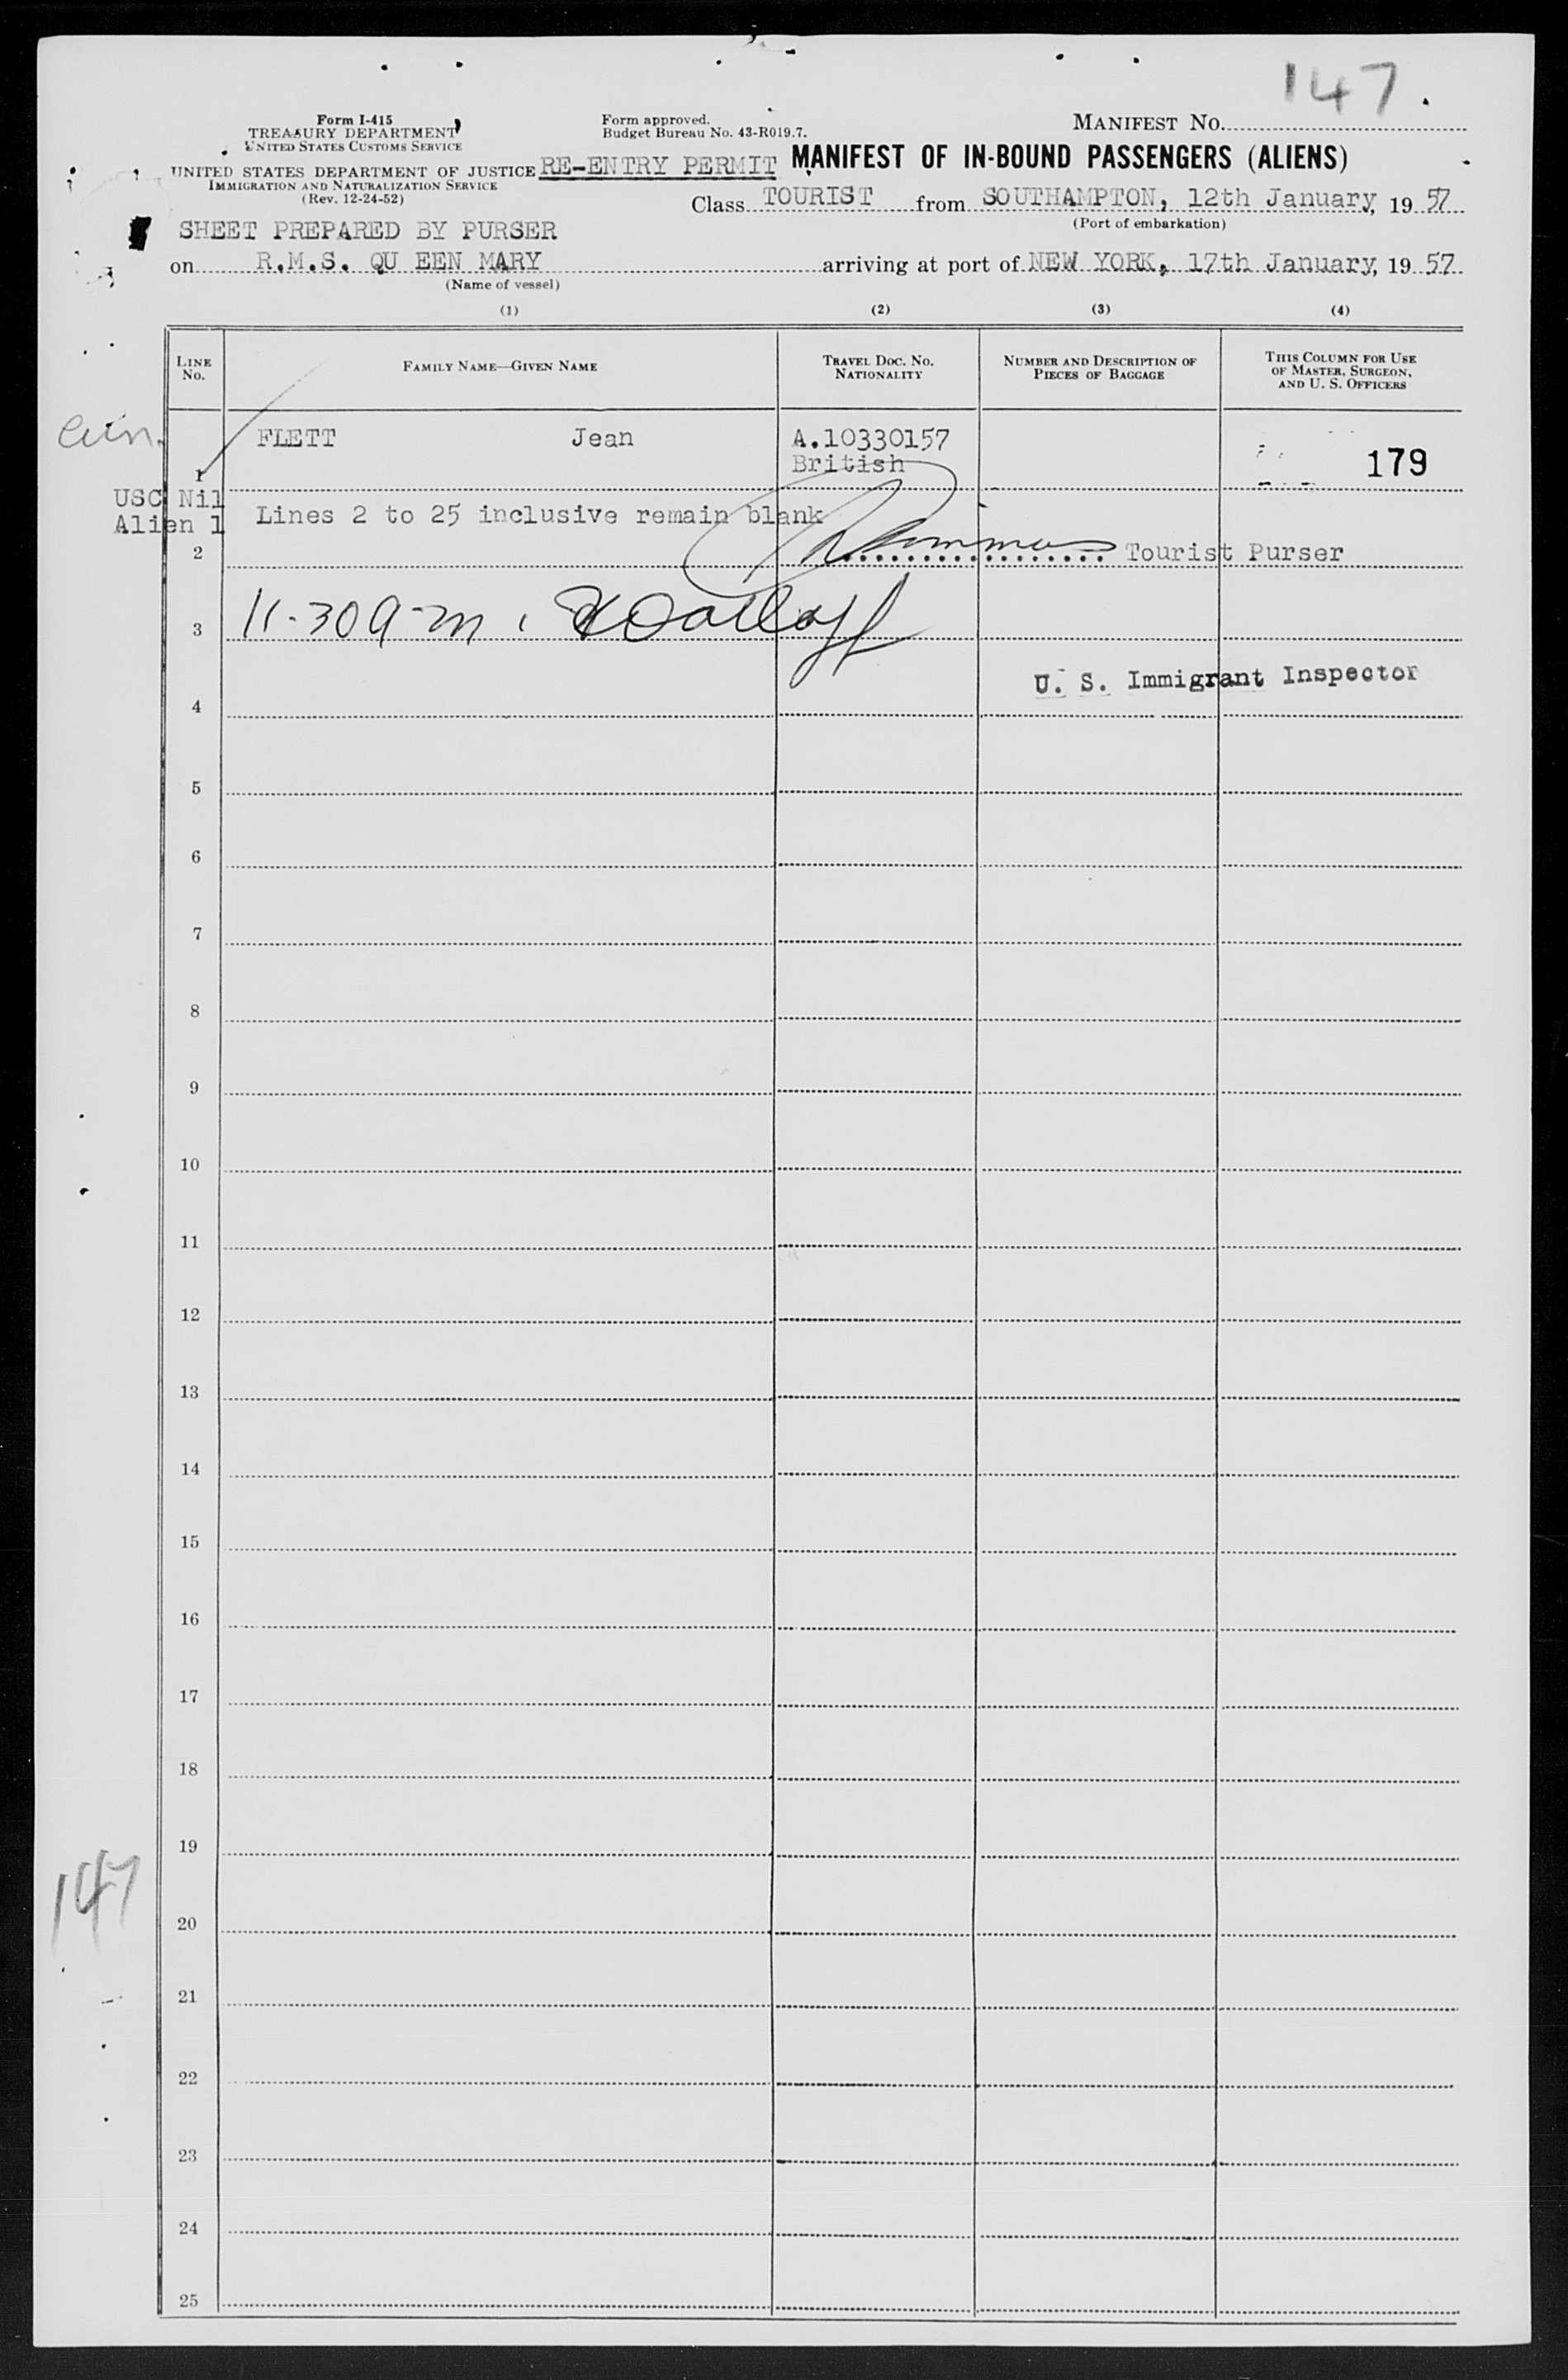 147.
Form I-415
TREASURY DEPARTMENT
UNITED STATES CUSTOMS SERVICE
UNITED STATES DEPARTMENT OF JUSTICE
IMMIGRATION AND NATURALIZATION SERVICE
(Rev. 12-24-52)
Form approved.
Budget Bureau No. 43-R019.7.
MANIFEST NO.
RE-ENTRY PERMIT MANIFEST OF IN-BOUND PASSENGERS (ALIENS)
Class TOURIST from SOUTHAMPTON, 12th January, 19 57
(Port of embarkation)
SHEET PREPARED BY PURSER
on R.M.S. QU EEN MARY arriving at port of NEW YORK, 17th January, 19 57
(Name of vessel)
(1) (2) (3) (4)
LINE NO.
FAMILY NAME—GIVEN NAME
TRAVEL DOC. NO.
NATIONALITY
NUMBER AND DESCRIPTION OF
PIECES OF BAGGAGE
THIS COLUMN FOR USE
OF MASTER, SURGEON,
AND U. S. OFFICERS
1 FLETT Jean A.10330157
British
179
USC Nil
Alien 1
Lines 2 to 25 inclusive remain blank
2 Tourist Purser
3 11-30 a-m
U. S. Immigrant Inspector
4
5
6
7
8
9
10
11
12
13
14
15
16
17
18
19
147
20
21
22
23
24
25